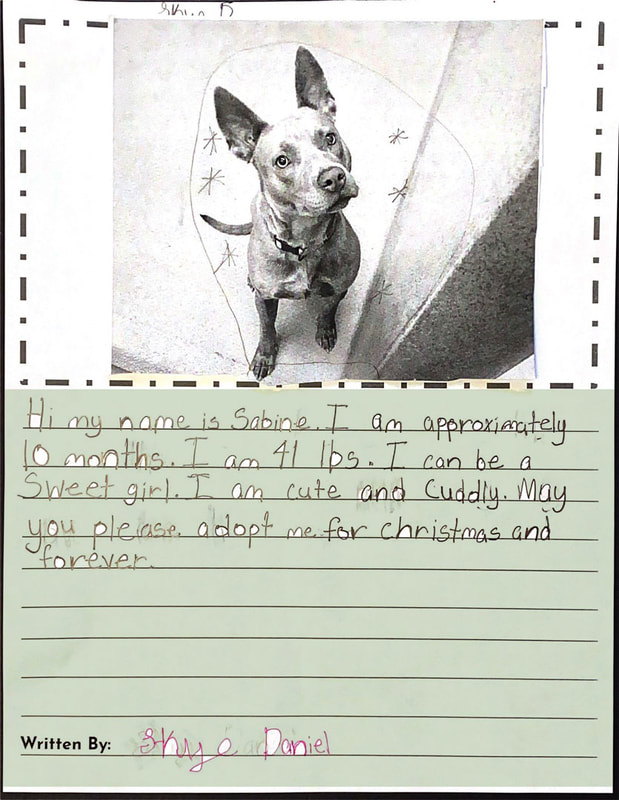 Hi my name is Sabine. I am approximately
10 months. I am 41 lbs. I can be a
Sweet girl. I am cute and Cuddly. May
you please adopt me for christmas and
forever.
Written By: Skye Daniel